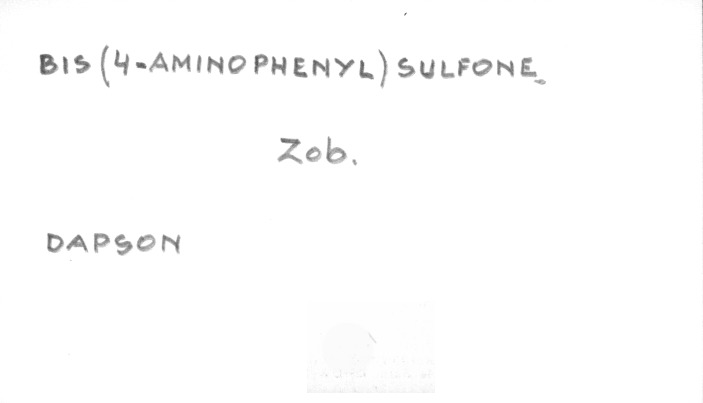 BIS (4-AMINOPHENYL) SULFONE
Zob.
DAPSON